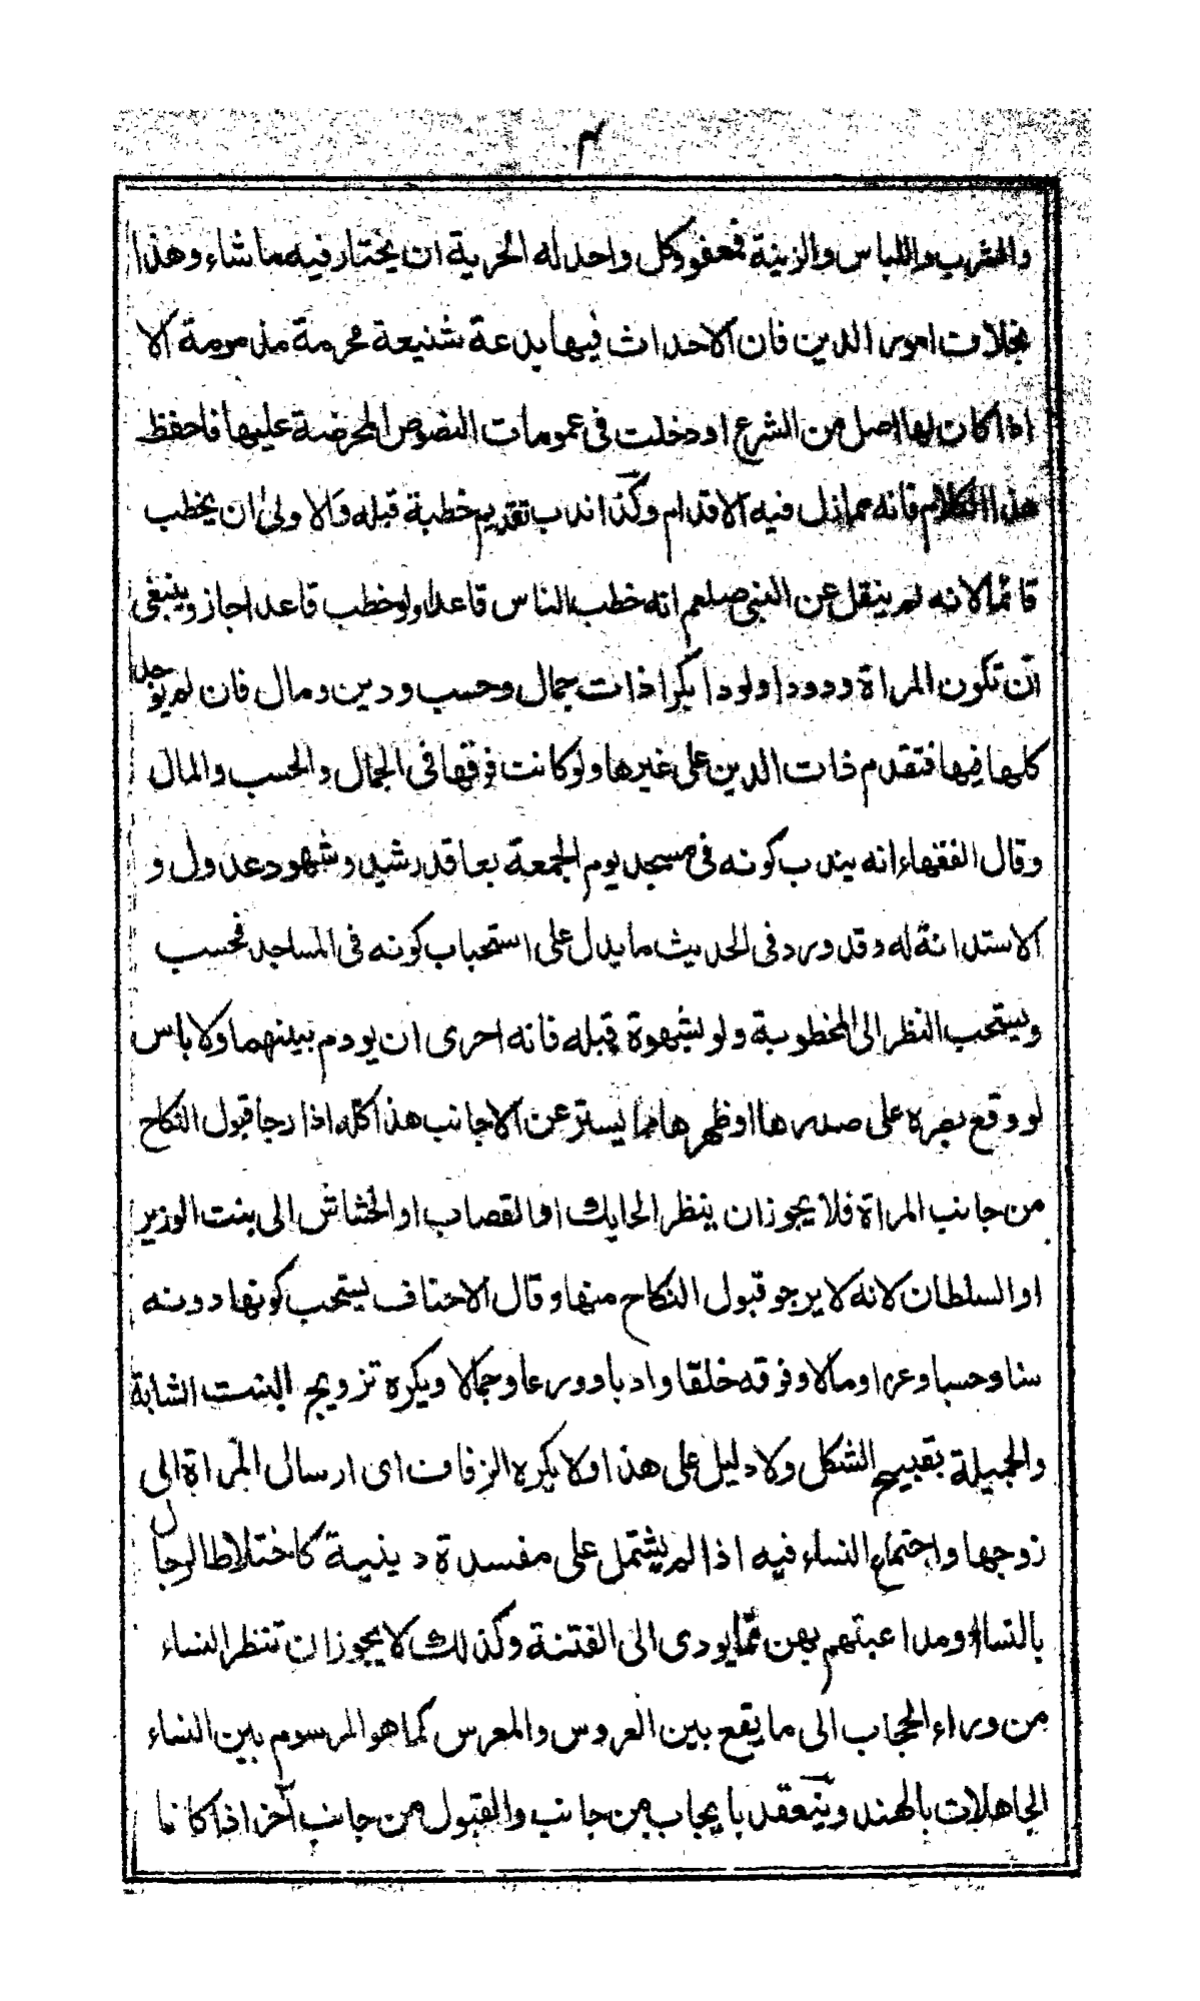 ۴
والمشرب واللباس والزينة فمعفو وكل واحد له الحرية ان يختار فيه ما شاء وهذا
بخلاف امور الدين فان الاحداث فيها بدعة شنيعة محرمة مذمومة الا
اذا كان لها اصل من الشرع او دخلت في عمومات النصوص المحرضة عليها فاحفظ
هذا الكلام فانه مما زل فيه الاقدام وكذا ندب تقديم خطبة قبله والاولى ان يخطب
قائما لانه لم ينقل عن النبي صلعم انه خطب الناس قاعدا ولو خطب قاعدا جاز وينبغي
ان تكون المراة ودودا ولودا بكرا ذات جمال وحسب ودين ومال فان لم يوجد
كلها فيها فتقدم ذات الدين على غيرها ولو كانت فوقها في الجمال والحسب والمال
وقال الفقهاء انه يندب كونه في مسجد يوم الجمعة بعاقد رشيد وشهود عدول و
الاستدانة له وقد ورد في الحديث ما يدل على استحباب كونه في المساجد فحسب
ويستحب النظر الى المخطوبة ولو بشهوة قبله فانه احرى ان يودم بينهما ولا باس
لو وقع بصره على صدرها او ظهرها مما يستر عن الاجانب هذا كله اذا رجا قبول النكاح
من جانب المراة فلا يجوز ان ينظر الحايك او القصاب او الخشاش الى بنت الوزير
او السلطان لانه لا يرجو قبول النكاح منها وقال الاحناف يستحب كونها دونه
سنا وحسبا وعزا ومالا وفوقه خلقا وادبا وورعا وجمالا ويكره تزويج البنت الشابة
والجميلة بقبيح الشكل ولا دليل على هذا ولا يكره الزفاف اى ارسال المراة الى
زوجها واجتماع النساء فيه اذا لم يشتمل على مفسدة دينية كاختلاط الرجال
بالنساء ومداعبتهم بهن مما يودى الى الفتنة وكذلك لا يجوز ان تنظر النساء
من وراء الحجاب الى ما يقع بين العروس والمعرس كما هو المرسوم بين النساء
الجاهلات بالهند وينعقد بايجاب من جانب والقبول من جانب آخر اذا كانا